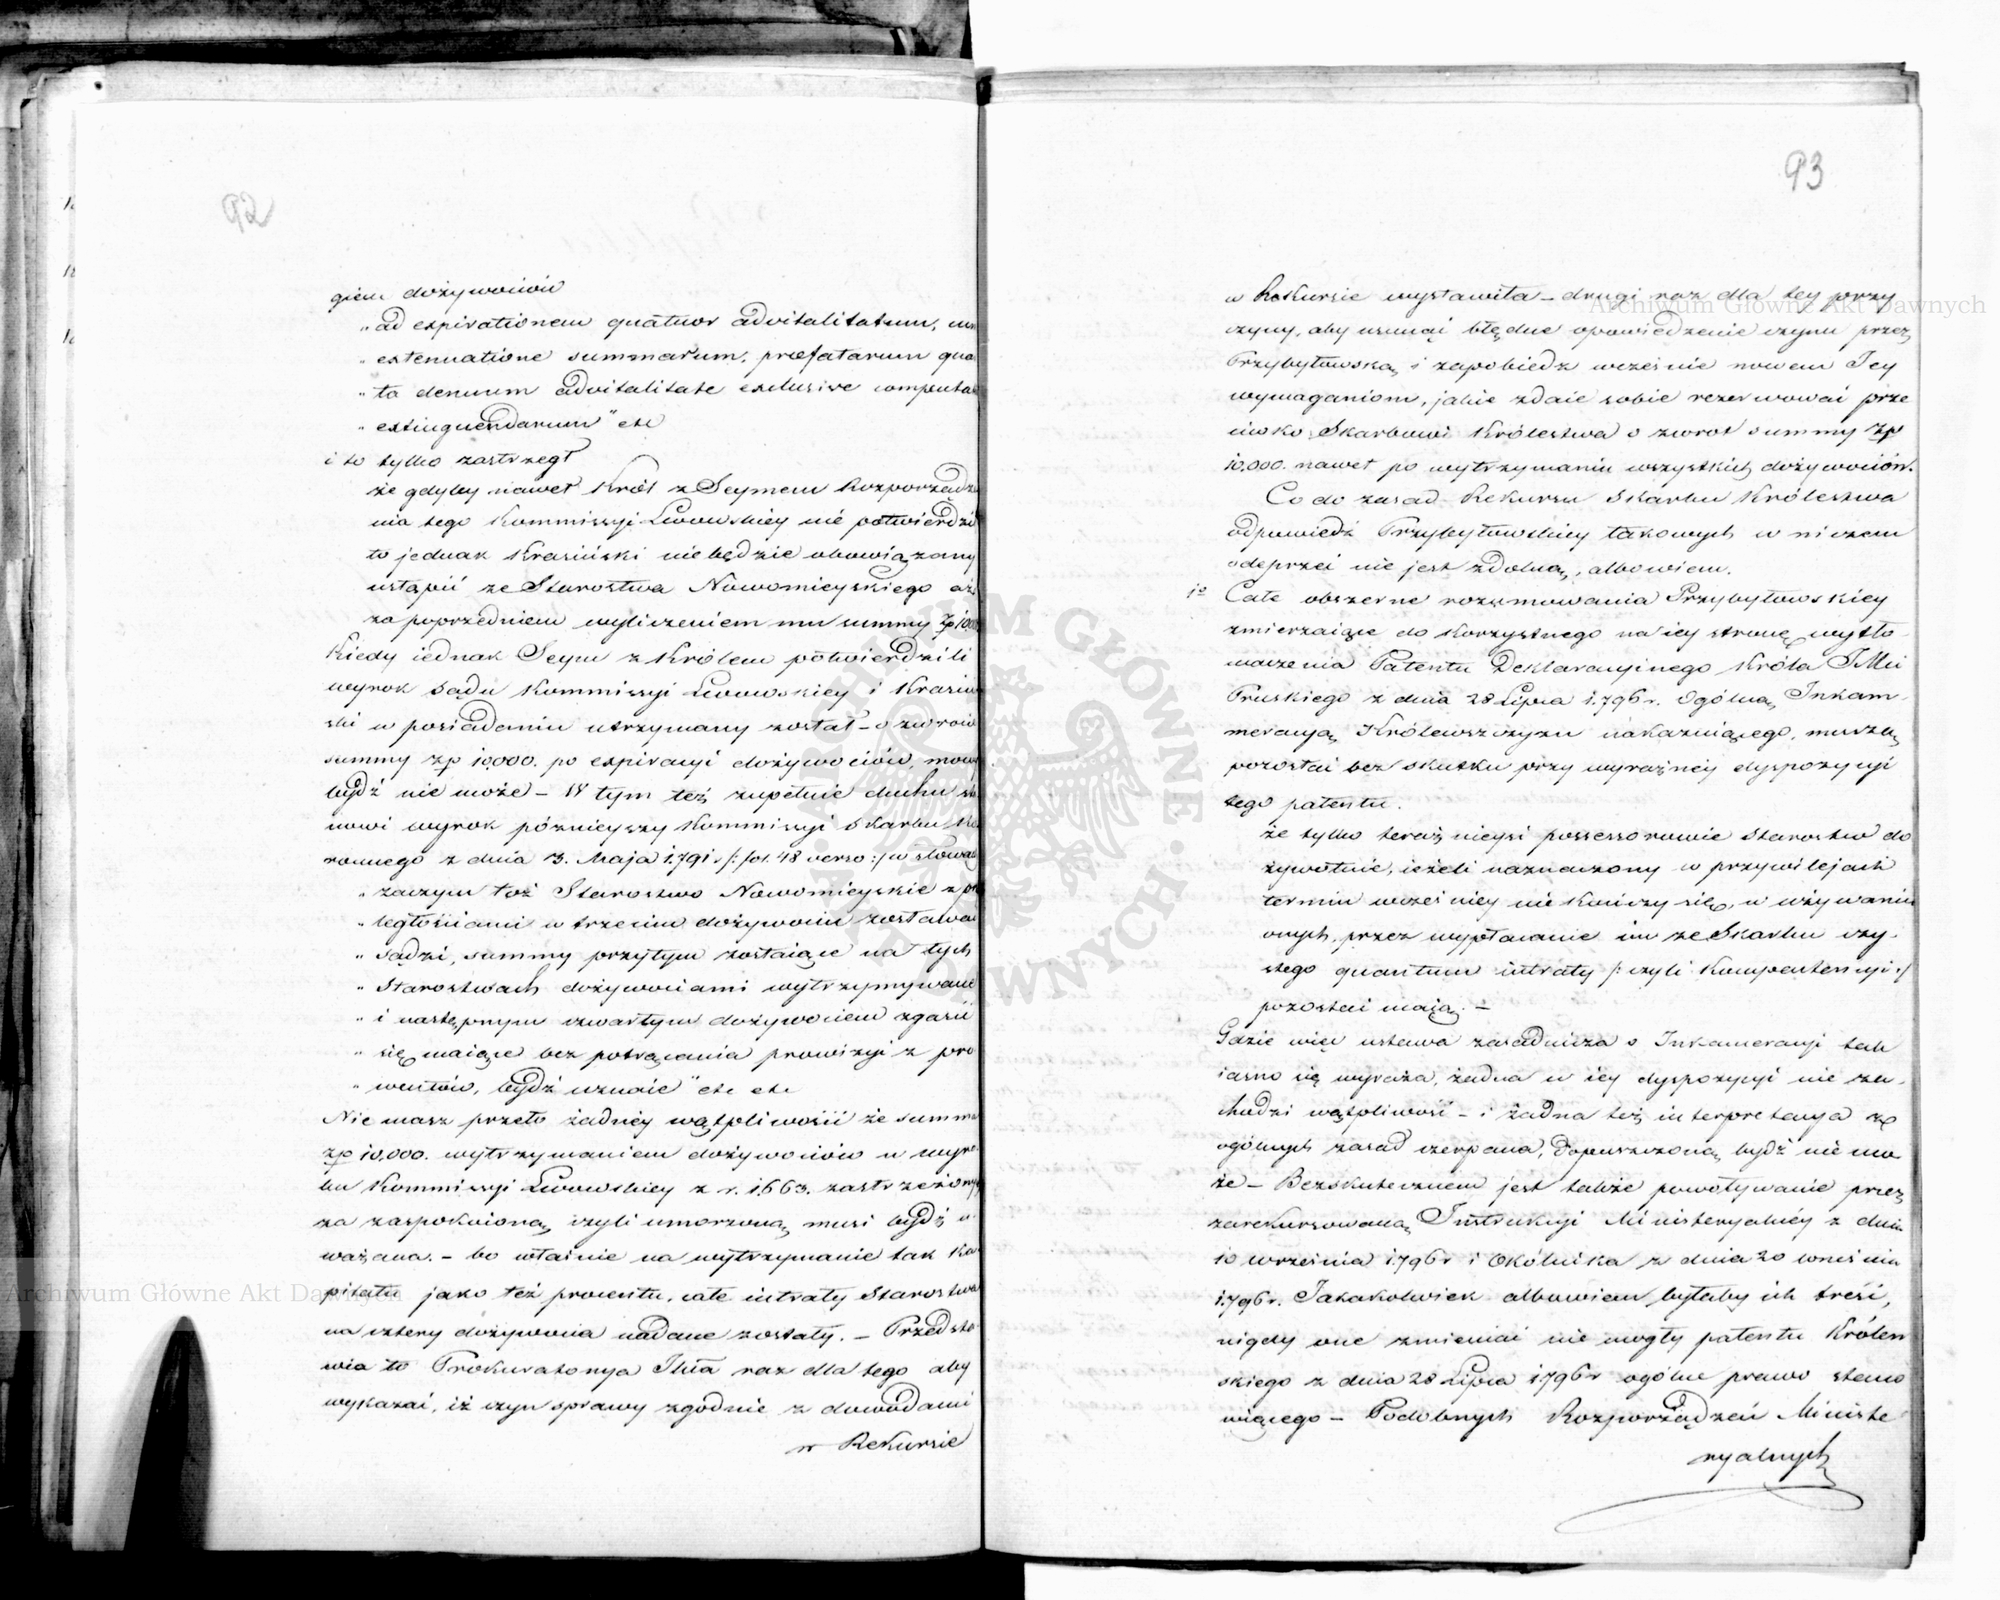 92
giem dożywociów
„ ad expirationem quatuor advitalitatum, cum
„ extenuatione summarum, præfatarum qua
„ to demum advitalitate exclusive computa
„ extinguendarum" etc
i to tylko zastrzegł
że gdyby nawet Król z Seymem Rozporządze
nia tego Kommissyi Lwowskiey nie potwierdzi
to jednak Krasiński nie będzie obowiązany
ustąpić ze Starostwa Nowomieyskiego aż
za poprzedniem wyliczeniem mu summy Zp 10,000
Kiedy iednak Seym z Królem potwierdzili
wyrok Sądu Kommissyi Lwowskiey i Krasiń
ski w posiadaniu utrzymany został – o zwrocie
summy zp 10,000. po expiracyi dożywociów, mowy
bydź nie może – W tym też zupełnie duchu sta
nowi wyrok późnieyszy Kommissyi Skarbu Ko
ronnego z dnia 13. Maja 1.791 r /: fol. 48 verso :/ w słowach
„ zaczym toż Starostwo Nowomieyskie z prz
„ ległościami w trzecim dożywociu zostawać
„ sądzi, summy przytym zostaiące na tych
„ Starostwach dożywociami wytrzymywane
„ i następnym czwartym dożywociem zgasić
„ się maiące bez potrącania prowizyi z pro
„ wentów, bydź uznaie" etc etc
Nie masz przeto żadney wątpliwości że summa
zp 10,000. wytrzymaniem dożywociów w wyro
ku Kommissyi Lwowskiey z r. 1.663. zastrzeżonych
za zaspokoioną czyli umorzoną musi bydź u
ważana. – bo właśnie na wytrzymanie tak ka
pitału jako też procentu, całe intraty Starostwa
na cztery dożywocia nadane zostały. – Przedsta
wia to Prokuratorya Jlna raz dla tego aby
wykazać, iż czyn sprawy zgodnie z dowodami
w Rekursie
93
w Rekursie wystawiła – drugi raz dla tey przy
czyny, aby usunąć błędne opowiedzenie czynu przez
Przybyłowską i zapobiedz wcześnie nowem Jey
wymaganiom, jakie zdaie sobie rezerwować prze
ciwko Skarbowi Królestwa o zwrot summy Zp
10.000. nawet po wytrzymaniu wszystkich dożywociów.
Co do zasad Rekursu Skarbu Królestwa
odpowiedź Przybyłowskiey takowych w niczem
odeprzeć nie jest zdolną, albowiem.
1o Całe obszerne rozumowania Przybyłowskiey
zmierzaiące do korzystnego na iey stronę wytło
maczenia Patentu Deklaracyinego Króla JMci
Pruskiego z dnia 28 Lipca 1.796 r. Ogólną Inkam-
meracyą Królewszczyzn nakazuiącego, muszą
pozostać bez skutku przy wyraźney dyspozycyi
tego patentu.
że tylko teraźnieysi possessorowie Starostw do
żywotnie, ieżeli naznaczony w przywilejach
termin wcześniey nie kończy się, w używaniu
onych, przez wypłacanie im ze Skarbu czy-
stego quantum intraty /: czyli Kompetencyi :/
pozostać maią. –
Gdzie więc ustawa zasadnicza o Inkameracyi tak
iasno się wyraża, żadna w iey dyspozycyi nie za-
chodzi wątpliwość – i żadna też interpretacya ze
ogólnych zasad czerpana, dopuszczoną bydź nie mo
że – Bezskutecznem jest także powoływanie przez
zarekursowaną Instrukcyi Ministeryalnéy z dnia
10 września 1.796 r i Okólnika z dnia 20 września
1.796 r. Jakakolwiek albowiem byłaby ich treść,
nigdy one zmieniać nie mogły patentu Królew
skiego z dnia 28 Lipca 1.796 r ogólne prawo stano
wiącego – Podobnych Rozporządzeń Ministe
ryalnych